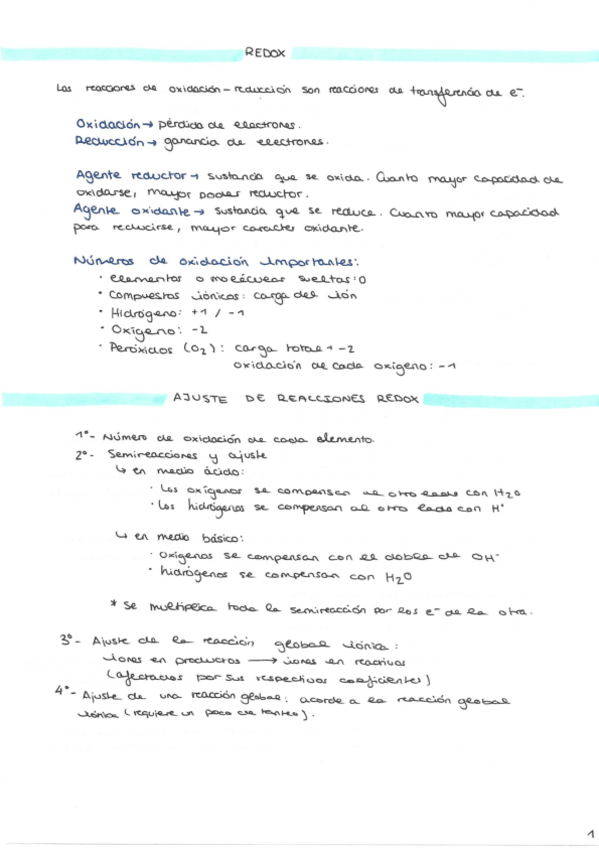 REDOX
Las reacciones de oxidación-reducción son reacciones de transferencia de e⁻.
Oxidación → pérdida de electrones.
Reducción → ganancia de electrones.
Agente reductor → sustancia que se oxida. Cuanto mayor capacidad de
oxidarse, mayor poder reductor.
Agente oxidante → sustancia que se reduce. Cuanto mayor capacidad
para reducirse, mayor caracter oxidante.
Números de oxidación importantes:
· elementos o moléculas sueltas: 0
· Compuestos iónicos: carga del ión
· Hidrógeno: +1 / -1
· Oxígeno: -2
· Peróxidos (O₂): carga total → -2
oxidación de cada oxígeno: -1
AJUSTE DE REACCIONES REDOX
1º- Número de oxidación de cada elemento.
2º- Semireacciones y ajuste
↳ en medio ácido:
· Los oxígenos se compensan al otro lado con H₂O
· Los hidrógenos se compensan al otro lado con H⁺
↳ en medio básico:
· Oxígenos se compensan con el doble de OH⁻
· hidrógenos se compensan con H₂O
* Se multiplica toda la semireacción por los e⁻ de la otra.
3º- Ajuste de la reacción global iónica:
iones en productos → iones en reactivos
(afectados por sus respectivos coeficientes)
4º- Ajuste de una reacción global: acorde a la reacción global
iónica (requiere un poco de tanteo).
1